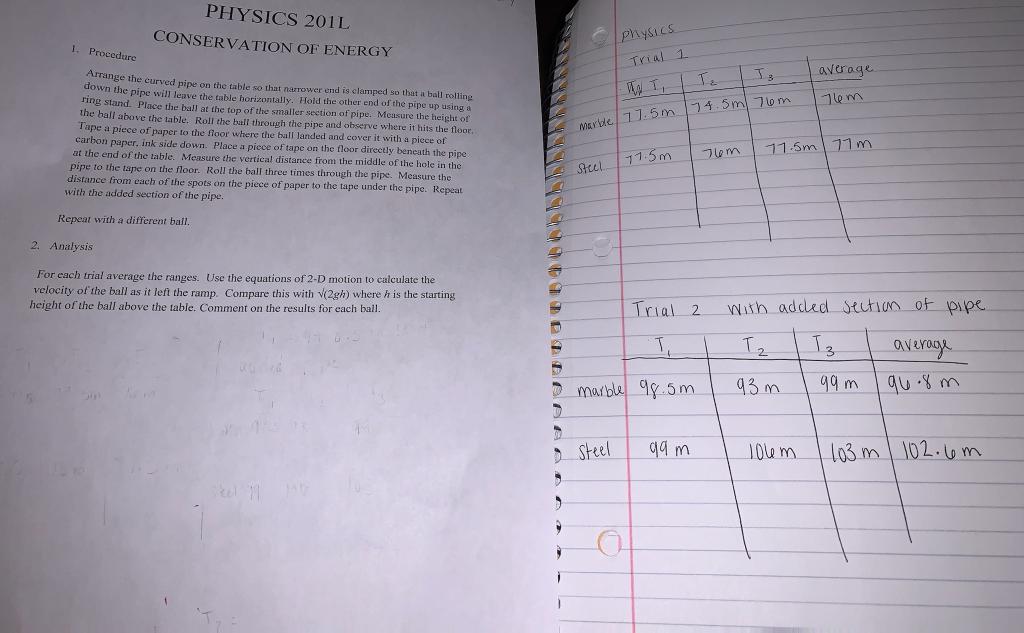 PHYSICS 201L
CONSERVATION OF ENERGY
1. Procedure
Arrange the curved pipe on the table so that narrower end is clamped so that a ball rolling
down the pipe will leave the table horizontally. Hold the other end of the pipe up using a
ring stand. Place the ball at the top of the smaller section of pipe. Measure the height of
the ball above the table. Roll the ball through the pipe and observe where it hits the floor.
Tape a piece of paper to the floor where the ball landed and cover it with a piece of
carbon paper, ink side down. Place a piece of tape on the floor directly beneath the pipe
at the end of the table. Measure the vertical distance from the middle of the hole in the
pipe to the tape on the floor. Roll the ball three times through the pipe. Measure the
distance from each of the spots on the piece of paper to the tape under the pipe. Repeat
with the added section of the pipe.
Repeat with a different ball.
2. Analysis
For each trial average the ranges. Use the equations of 2-D motion to calculate the
velocity of the ball as it left the ramp. Compare this with √(2gh) where h is the starting
height of the ball above the table. Comment on the results for each ball.
physics
Trial 1
T₁ T₂ T₃ average
marble 77.5m 74.5m 76m 76m
Steel 77.5m 76m 77.5m 77m
Trial 2 with added section of pipe
T₁ T₂ T₃ average
marble 98.5m 93m 99m 96.8m
Steel 99m 106m 103m 102.6m